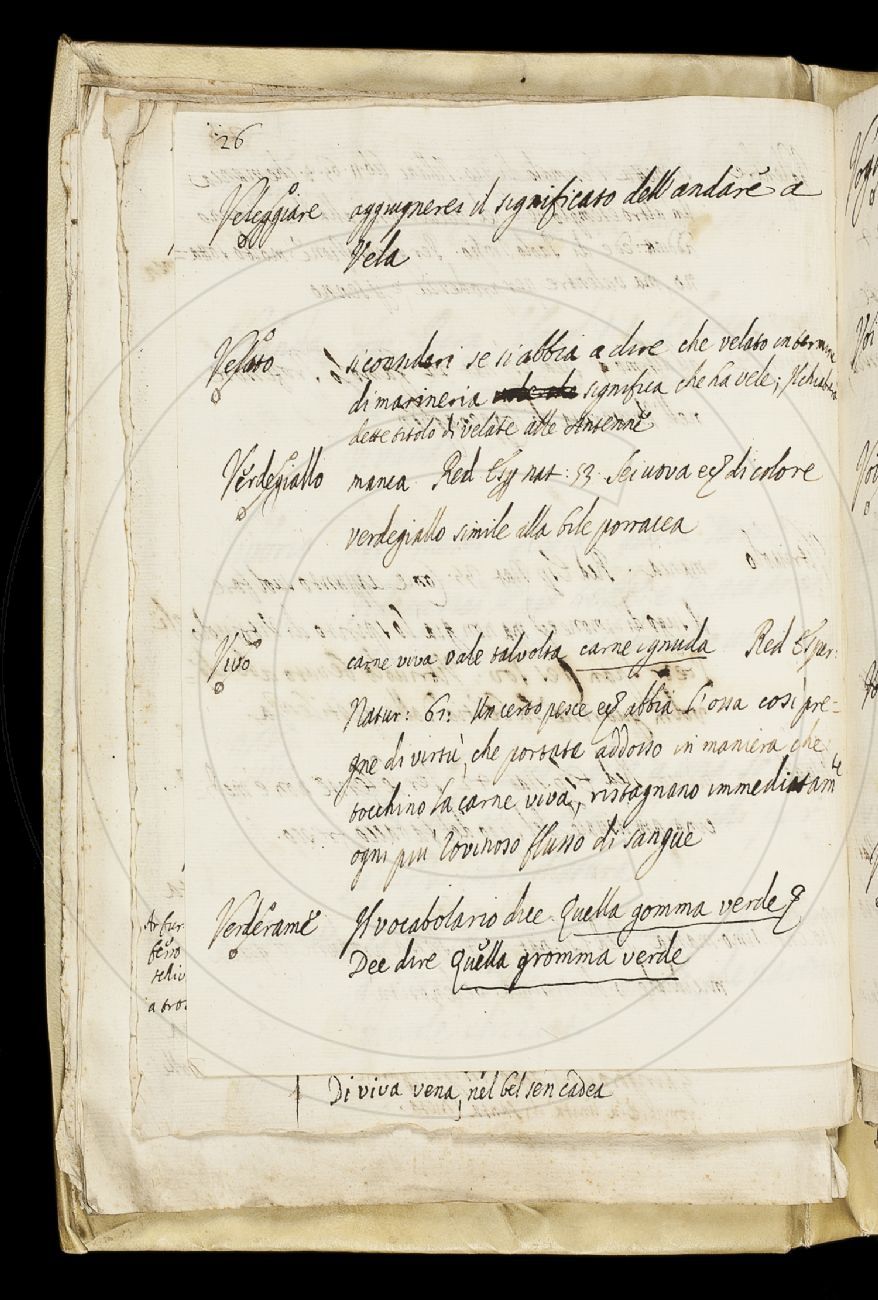 26
Veleggiare aggiugnerei il significato dell'andare a
Vela
Velato si consideri se si abbia a dire che velato in termine
di marineria significa che ha vele; Il Chiabrera
dette titolo di velate alle Antenne
Verdegiallo manca Red Esp nat: 93. Sei uova ec. di colore
verdegiallo simile alla bile porracea
Vivo carne viva vale talvolta carne ignuda Red Esper:
Natur: 61: Un certo pesce ec. abbia l'ossa così pre=
gne di virtù, che portata addosso in maniera che
tocchino la carne viva, ristagnano immediatamte
ogni più rovinoso flusso di sangue
Verderame Il vocabolario dice Quella gomma verde ec.
Dee dire Quella gromma verde
Di viva vena, nel bel sen cadea